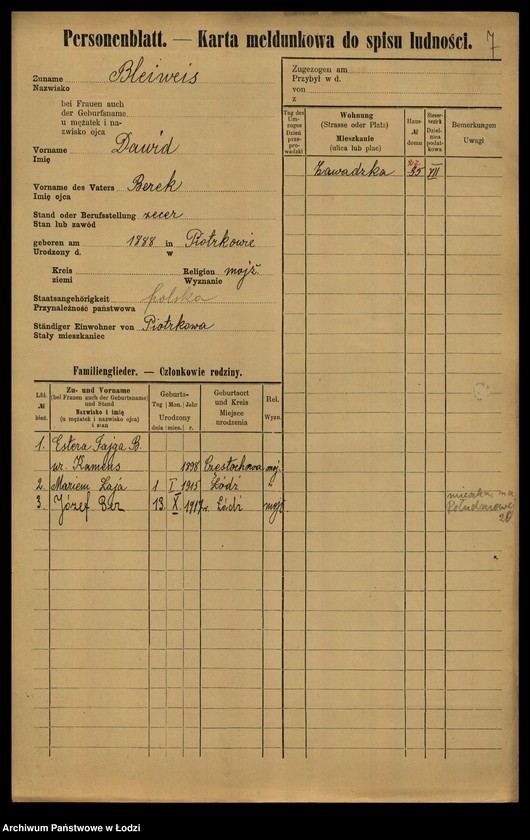 Personenblatt. — Karta meldunkowa do spisu ludności. 7
Zuname
Nazwisko
Bleiweis
bei Frauen auch
der Geburtsname
u mężatek i na-
zwisko ojca
Vorname
Imię
Dawid
Vorname des Vaters
Imię ojca
Berek
Stand oder Berufsstellung
Stan lub zawód
zecer
geboren am 1888 in Piotrkowie
Urodzony d. w
Kreis
ziemi
Religion
Wyznanie
mojż.
Staatsangehörigkeit
Przynależność państwowa
polska
Ständiger Einwohner von
Stały mieszkaniec
Piotrkowa
Familienglieder. — Członkowie rodziny.
Lfd.
№
bież.
Zu- und Vorname
(bei Frauen auch der Geburtsname)
und Stand
Nazwisko i imię
(u mężatek i nazwisko ojca)
i stan
Geburts-
Tag Mon. Jahr
Urodzony
dnia mies. r.
Geburtsort
und Kreis
Miejsce
urodzenia
Rel.
Wyzn.
1. Estera Fajga B.
ur. Kamens 1898 Częstochowa moj.
2. Mariem Łaja 1 I 1915 Łódź "
3. Józef Ber 13. X. 1917r. Łódź mojż
Zugezogen am
Przybył w d.
von
z
Tag des
Um-
zuges
Dzień
prze-
prowadzki
Wohnung
(Strasse oder Platz)
Mieszkanie
(ulica lub plac)
Haus-
№
domu
Steuer-
bezirk
Dziel-
nica
podat-
kowa
Bemerkungen
Uwagi
Zawadzka 35 VII
mieszka na
Południowej
20
Archiwum Państwowe w Łodzi